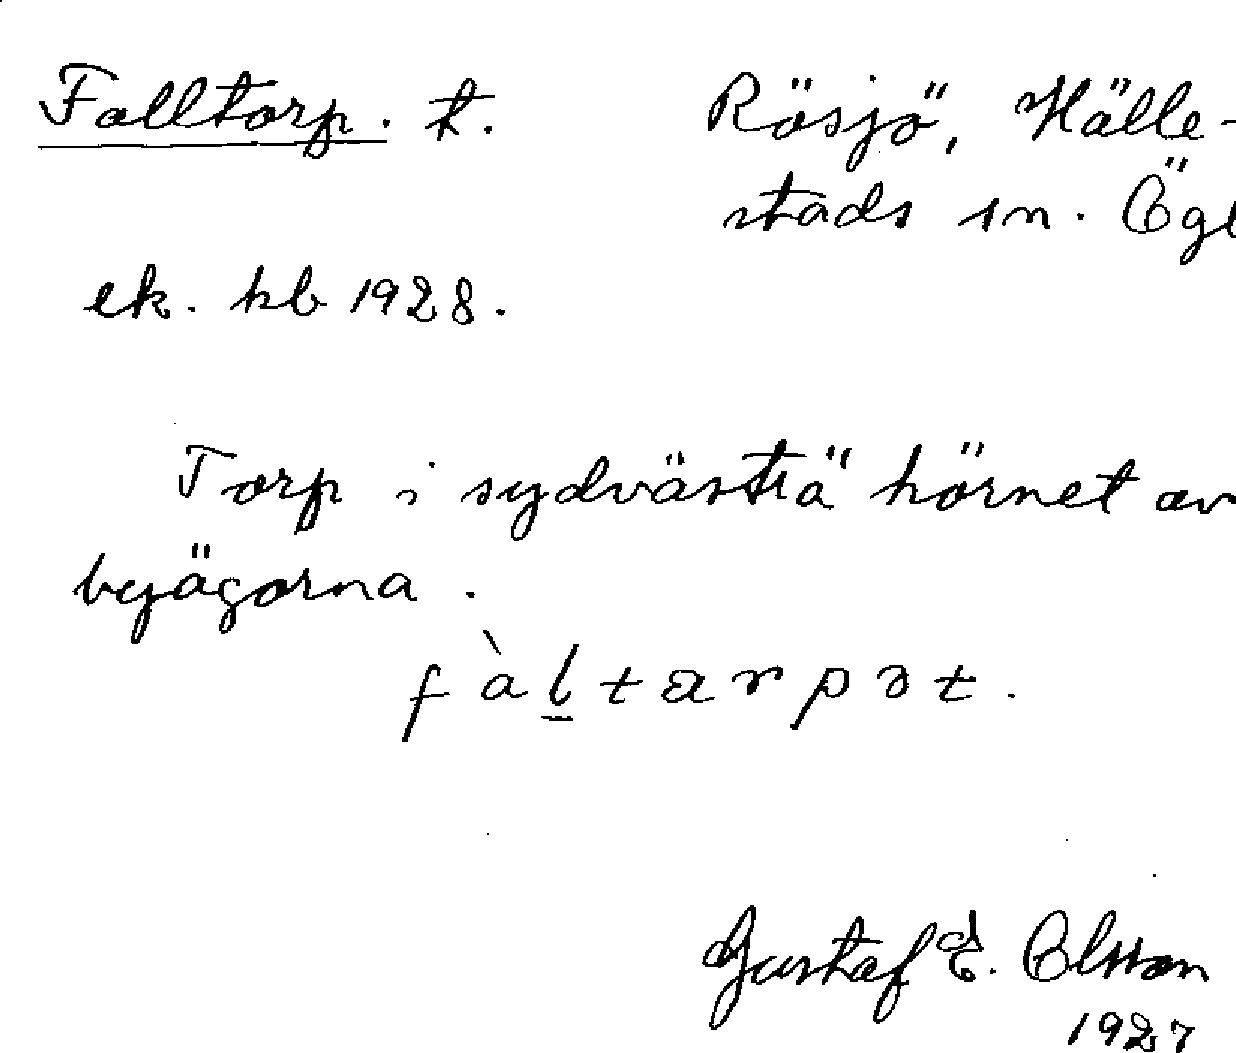 Falltorp. t. Rösjö, Hälle-
stads sn. Ögl
ek. kb 1928.
Torp i sydvästra hörnet av
byägorna.
fàl̲tarpət.
Gustaf E. Olsson
1927